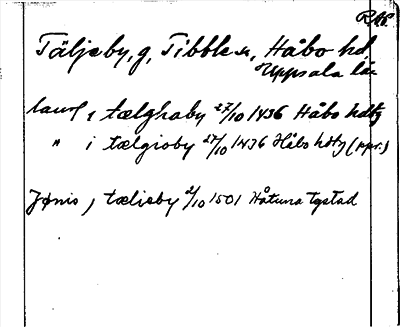 RAP.
Täljeby, g, Tibble sn, Håbo hd,
Uppsala län
laur i tælghaby 27/10 1436 Håbo hdtg
" i tælgioby 27/10 1436 Håbo hdtg (ppr.)
Jønis j tælieby 2/10 1501 Håtuna tgstad